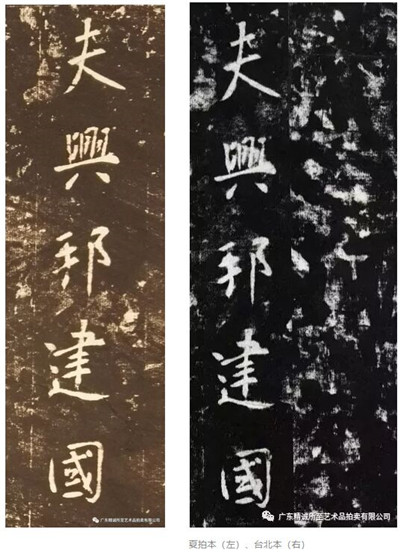 夫興邦建國
夫興邦建國
广东精诚所至艺术品拍卖有限公司
广东精诚所至艺术品拍卖有限公司
夏拍本（左）、台北本（右）